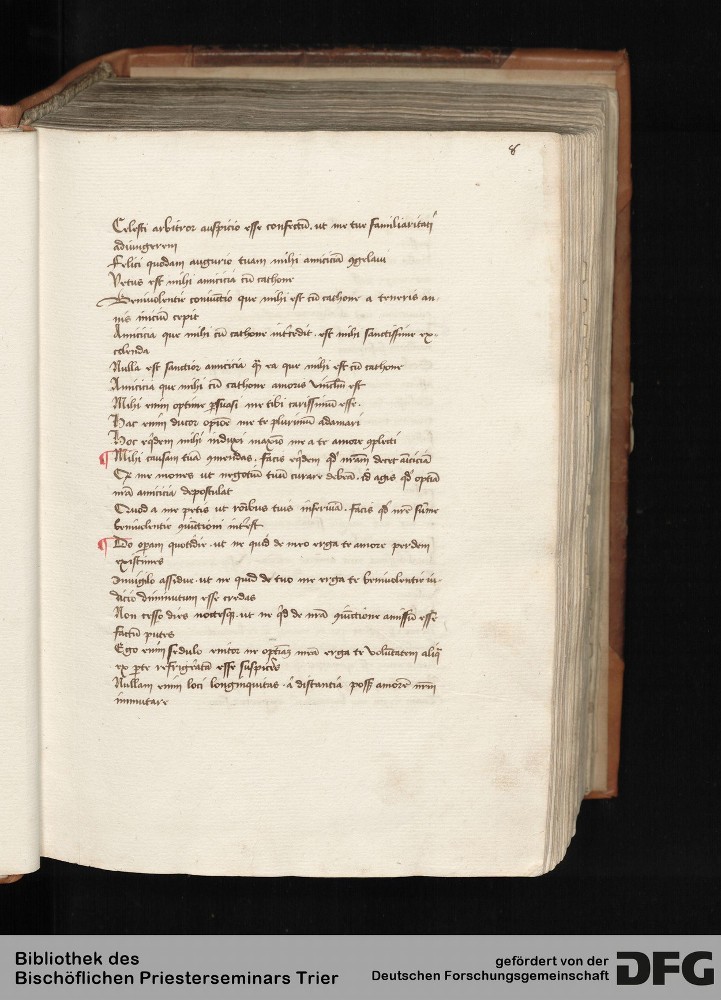 8
Celesti arbitror auspicio esse confectū. ut me tue familiaritati
adiungerem
Felici quodam augurio tuam mihi amiciciā ꝯgelavi
Vetus est mihi amicicia cū cathone
Benivolentie coniunctio que mihi est cū cathone a teneris an
nis inicium cepit
Amicicia que mihi cū cathone intercedit. est mihi sanctissime ex
colenda
Nulla est sanctior amicicia qᷓ ea que mihi est cū cathone
Amicicia que mihi cū cathone amoris vinclum est
Mihi enim optime ꝑsuasi me tibi carissimum esse.
Hac enim ducor opioē me te plurimū adamari
Hoc eqdem mihi induxi maxīo me a te amore ꝯplecti
Mihi causam tuā ꝯmendas. facis eqdem qd nrām decet amiciciā
me mones ut negotiū tuū curare debeā. id agis qd optīa
nrā amicicia depostulat
Quod a me petis ut rōibus tuis inserviā. facis qd nrē sūme
benivolentie ꝯiūctioni intest
Do operam quotidie. ut ne quid de meo erga te amore perdem
existimes
Invigilo assidue. ut ne quid de tuo me erga te benivolentie iu
dicio diminutum esse credas
Non cesso dies noctesqꝫ. ut ne qd de nrā ꝯiūctione amissū esse
factū putes
Ego enim sedulo enitor ne optīaꝫ nrā erga te volūtatem aliqᷓ
ex ꝑte refrigeratā esse suspiceris
Nullam enim loci longinquitas. a distantia posse amorē nrm
inmutare
Bibliothek des
Bischöflichen Priesterseminars Trier
gefördert von der
Deutschen Forschungsgemeinschaft
DFG